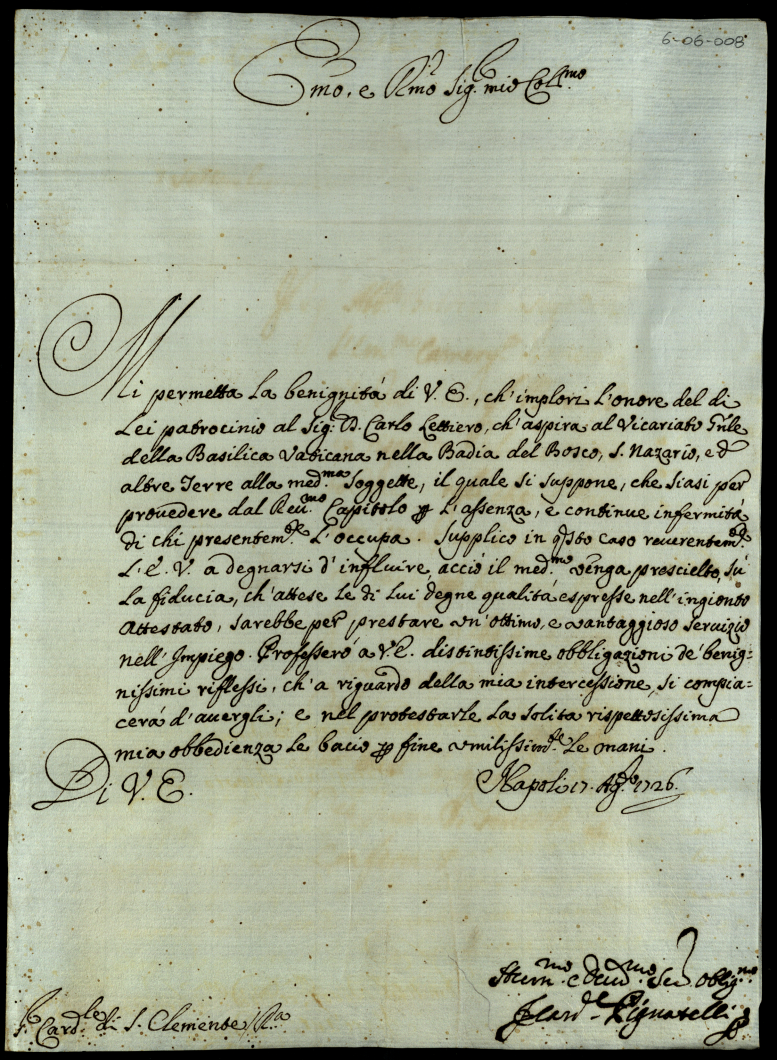 6-06-008
Emo, e Rmo Sig. mio Coll.mo
Mi permetta la benignitá di V. E., ch'implori l'onore del di
Lei patrocinio al Sig. D. Carlo Lettiero, ch'aspira al Vicariato Gnle
della Basilica Vaticana nella Badia del Bosco, S. Nazario, ed
altre Terre alla med.ma Soggette, il quale si suppone, che siasi per
provedere dal Reu.mo Capitolo p l'assenza, e continue infermitá
di chi presentem.te l'occupa. Supplico in qsto caso reverentem.te
L'E. V. a degnarsi d'influire, acció il med.mo venga prescielto, sú
la fiducia, ch'attese le di Lui degne qualitá espresse nell'ingionto
Attestato, sarebbe per prestare un'ottimo, e vantaggioso servizio
nell'Impiego. Professeró a V.E. distintissime obbligazioni de' benig=
nissimi riflessi, ch'a riguardo della mia intercessione, si compia=
cerá d'avergli; e nel protestarle la solita rispettosissima
mia obbedienza le bacio p fine umilissim.te le mani.
Di V. E.
Napoli 17. Ag.o 1726.
Hum.mo e Deu.mo Ser. oblig.mo
F. Card.le Pignatelli
S. Card.le di S. Clemente